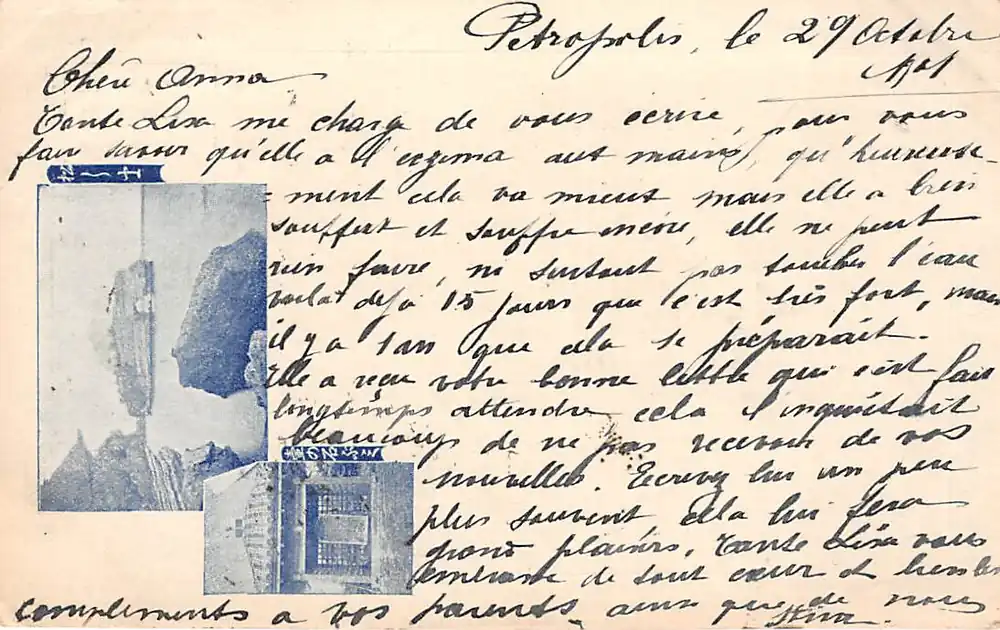 Petropolis, le 29 Octobre
1901
Chère Anna
Tante Lisa me charge de vous écrire, pour vous
fair savoir qu'elle a l'eczema aux mains, qu'heureuse-
ment cela va mieux mais elle a bien
souffert et souffre encore, elle ne peut
rien faire, ni surtout pas toucher l'eau
voila déjà 15 jours que c'est très fort, mais
il y a 1 an que cela se préparait.
Elle a reçu votre bonne lettre qui s'est fait
longtemps attendre cela l'inquiétait
beaucoup de ne pas recevoir de vos
nouvelles. Ecrivez lui un peu
plus souvent, cela lui fera
grand plaisirs, Tante Lisa vous
embrasse de tout cœur et bien les
complements a vos parents, ainsi que de nous